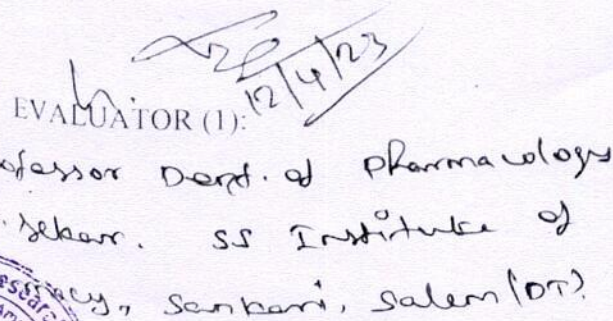 12/4/23
EVALUATOR (1):
ofessor Dept. of Pharmacology
sekar. SS Institute of
macy, Sankari, Salem (DT).